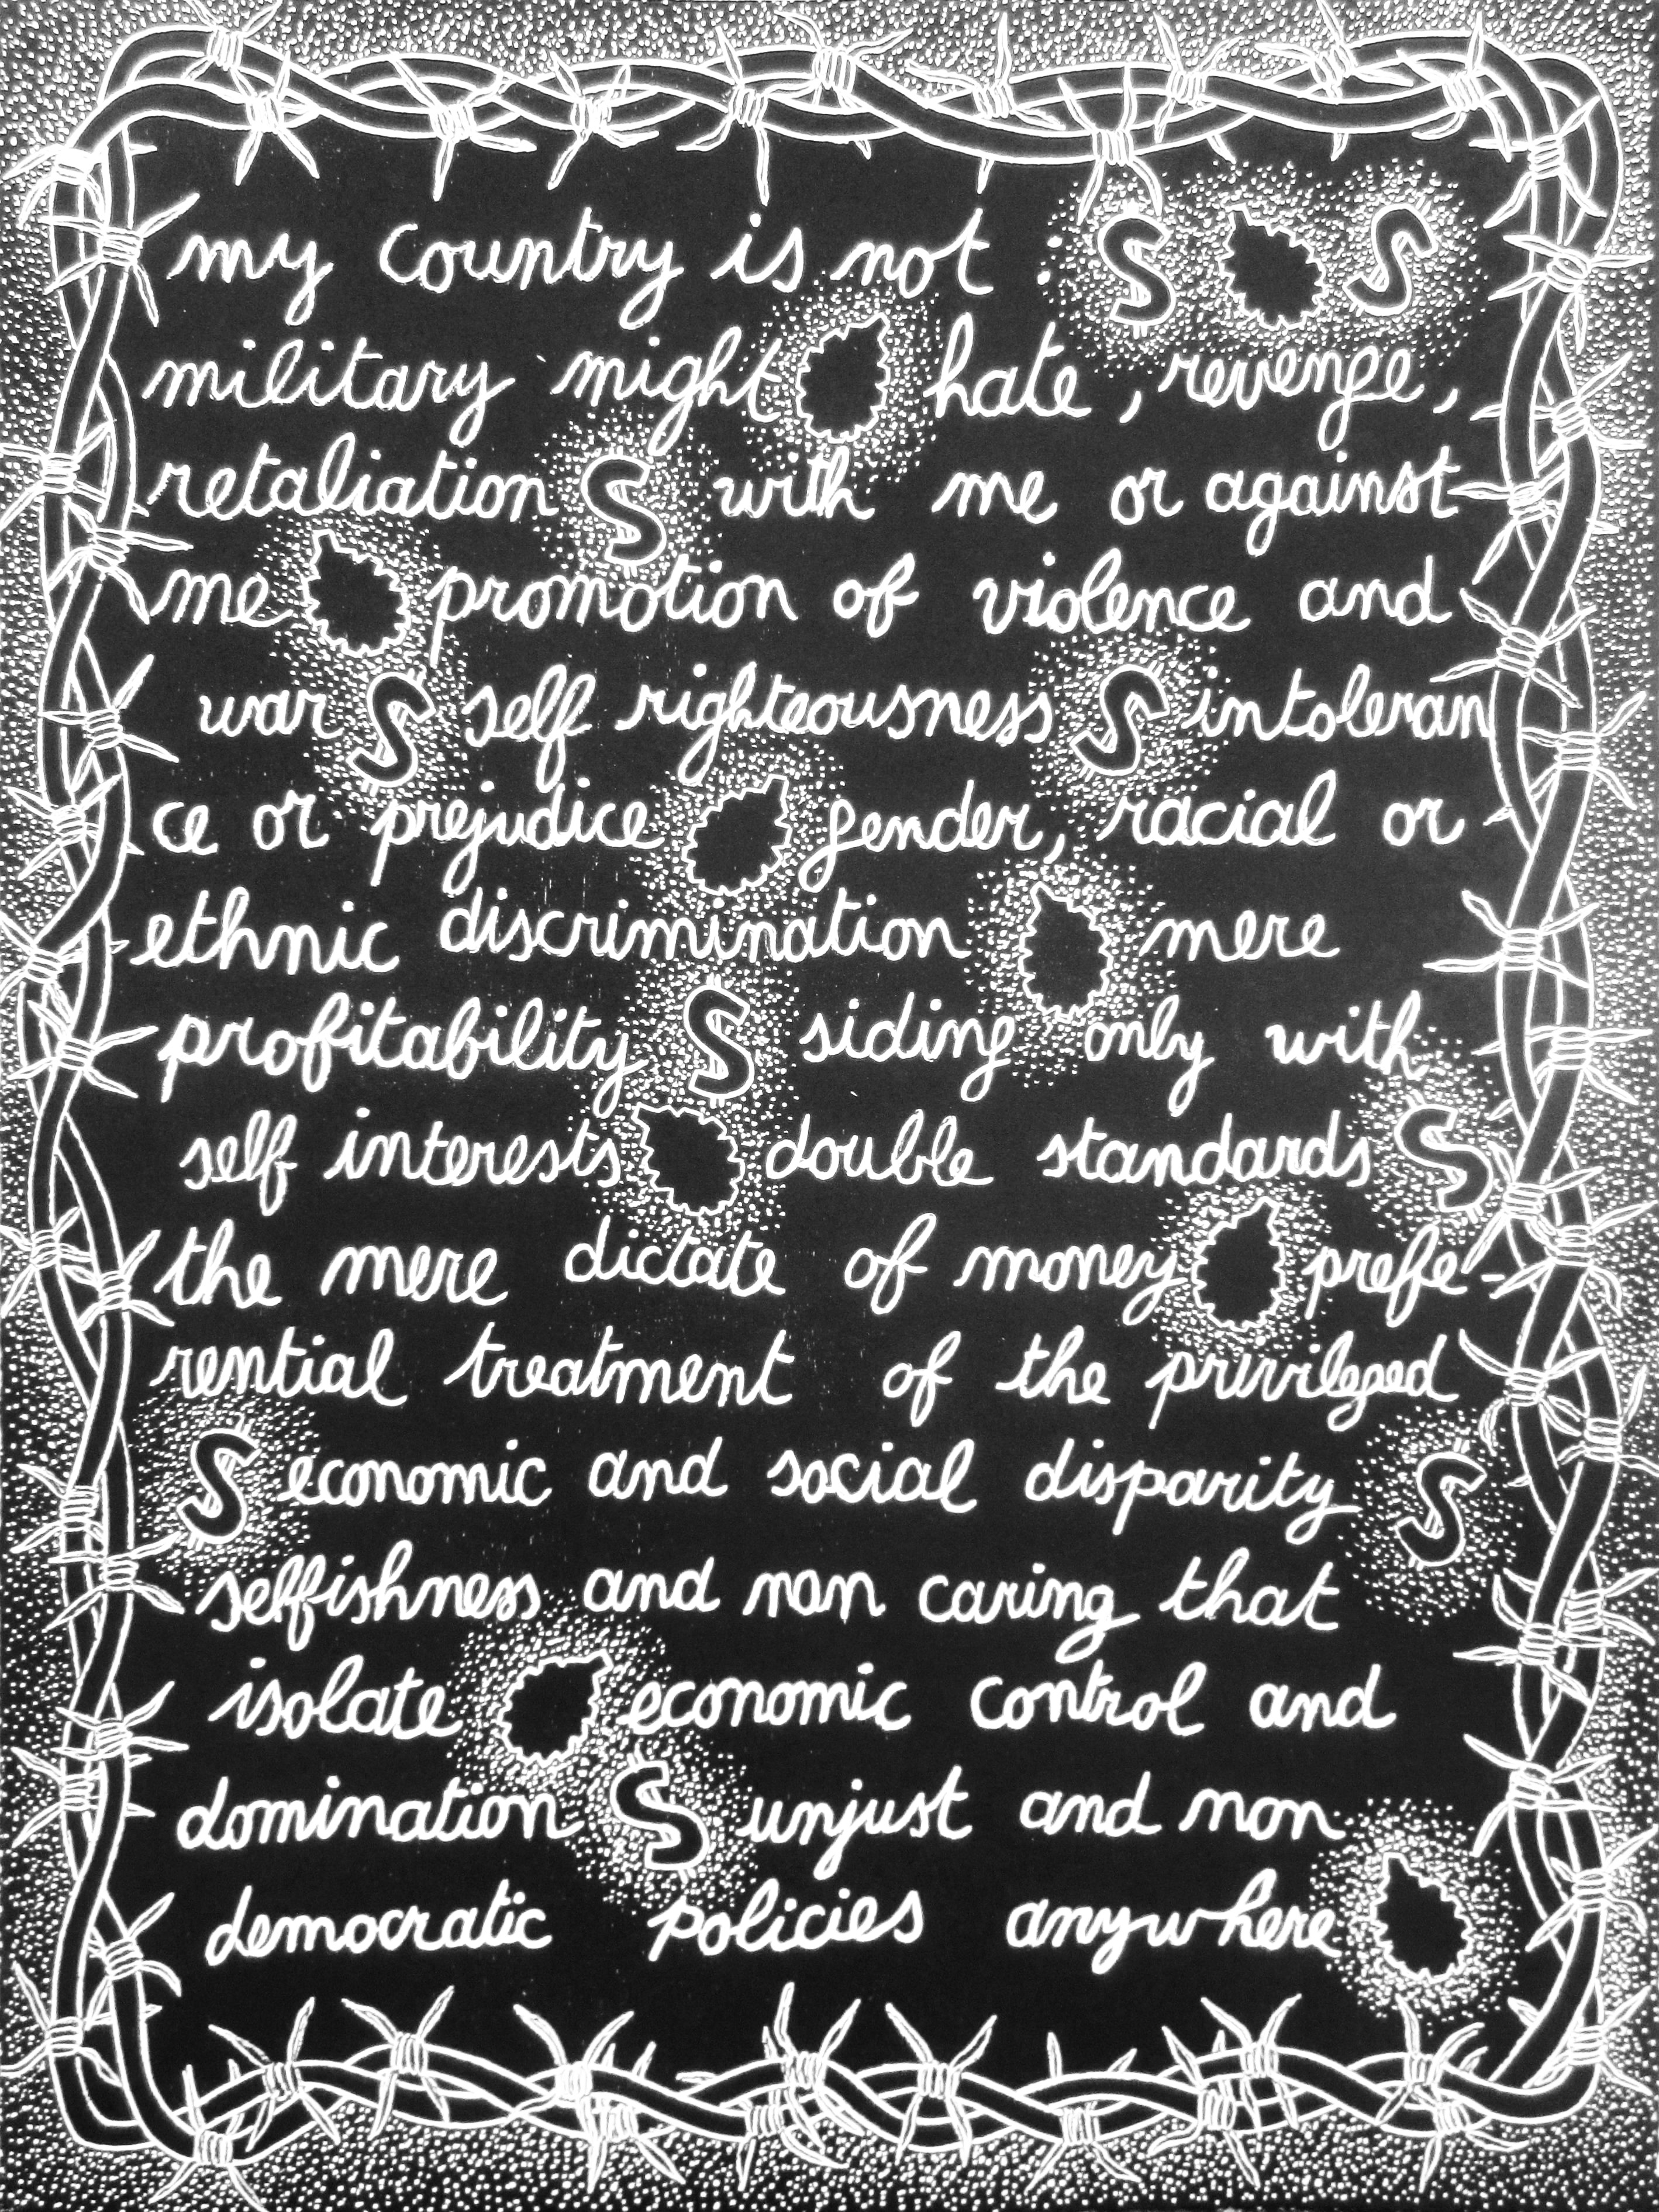 my country is not : $ $
military might hate, revenge,
retaliation $ with me or against
me promotion of violence and
war $ self righteousness $ intoleran
ce or prejudice gender, racial or
ethnic discrimination mere
profitability $ siding only with
self interests double standards $
the mere dictate of money prefe-
rential treatment of the privileged
$ economic and social disparity $
selfishness and non caring that
isolate economic control and
domination $ unjust and non
democratic policies anywhere